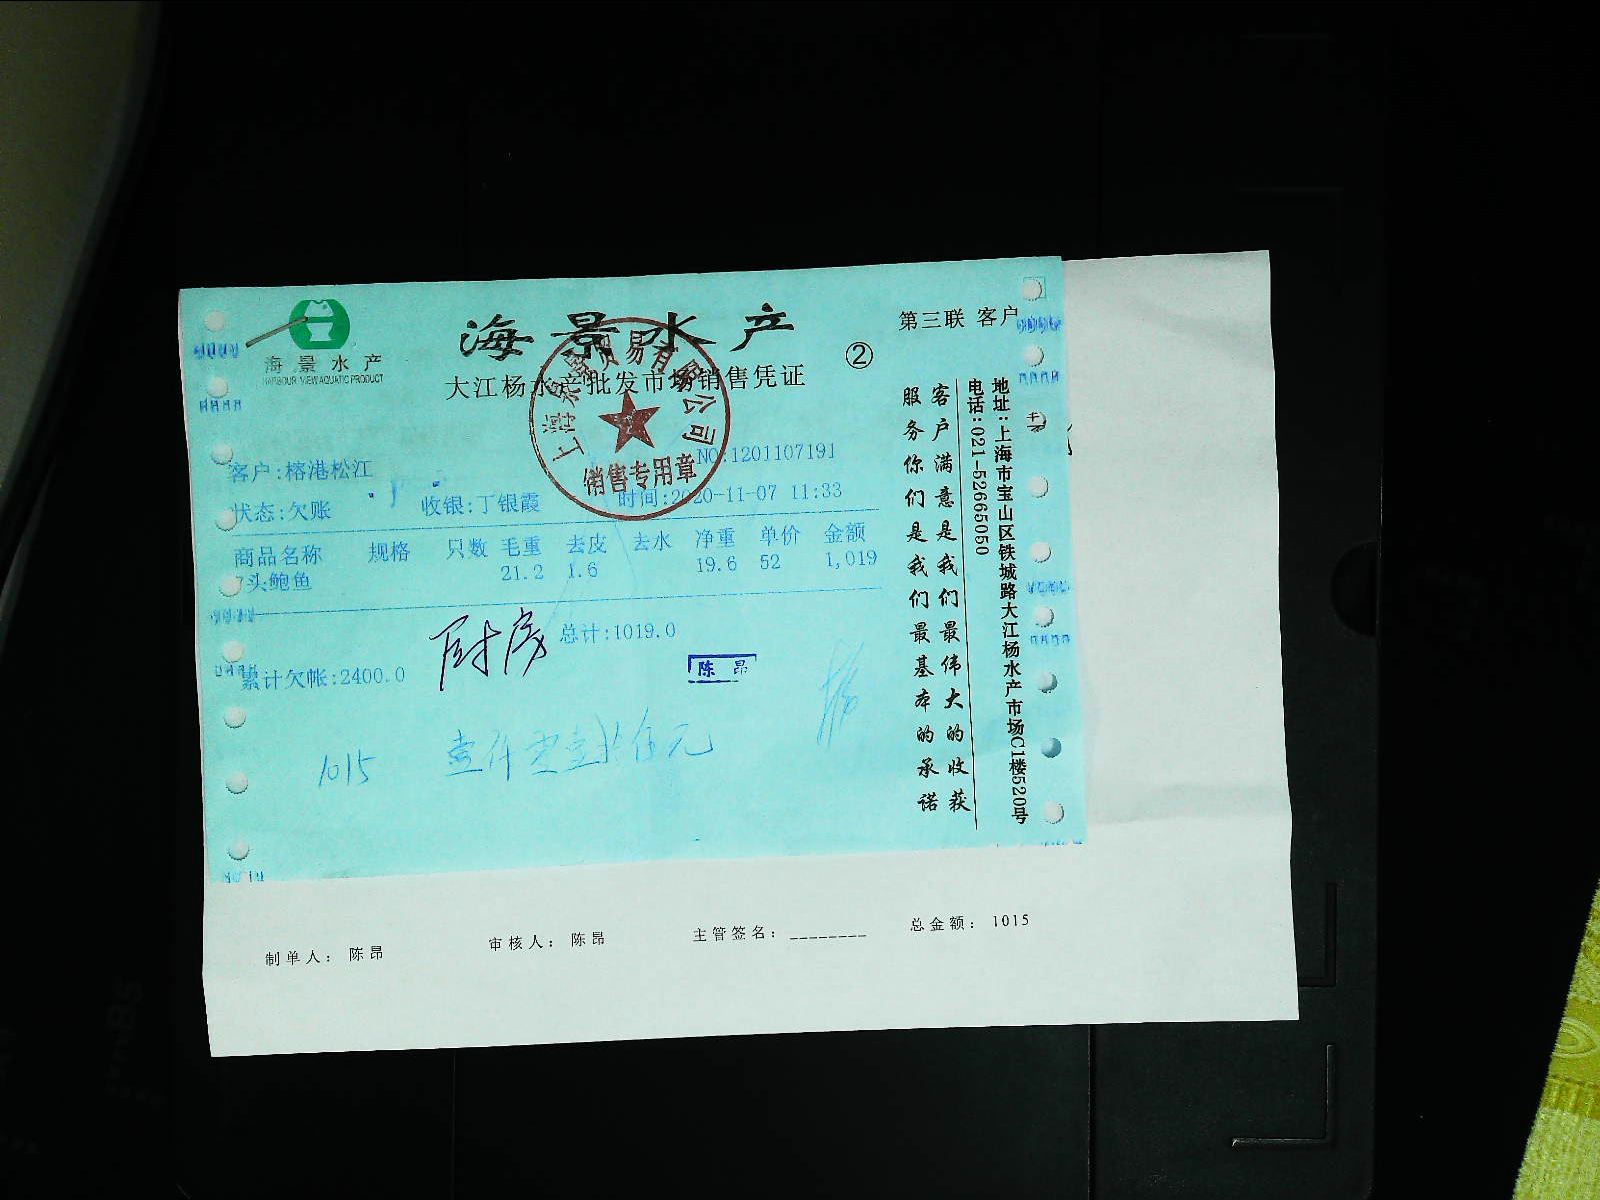 海景水产
HARBOUR VIEW AQUATIC PRODUCT
海景水产
大江杨水产批发市场销售凭证
②
第三联 客户
销售专用章
客户:榕港松江
NO:1201107191
状态:欠账
收银:丁银霞
时间:2020-11-07 11:33
商品名称 规格 只数 毛重 去皮 去水 净重 单价 金额
头鲍鱼 21.2 1.6 19.6 52 1,019
厨房
总计:1019.0
累计欠帐:2400.0
陈昂
1015
壹仟零壹拾伍元
地址:上海市宝山区铁城路大江杨水产市场C1楼520号
电话:021-52665050
客户满意是我们最伟大的收获
服务你们是我们最基本的承诺
制单人: 陈昂
审核人: 陈昂
主管签名: ________
总金额: 1015